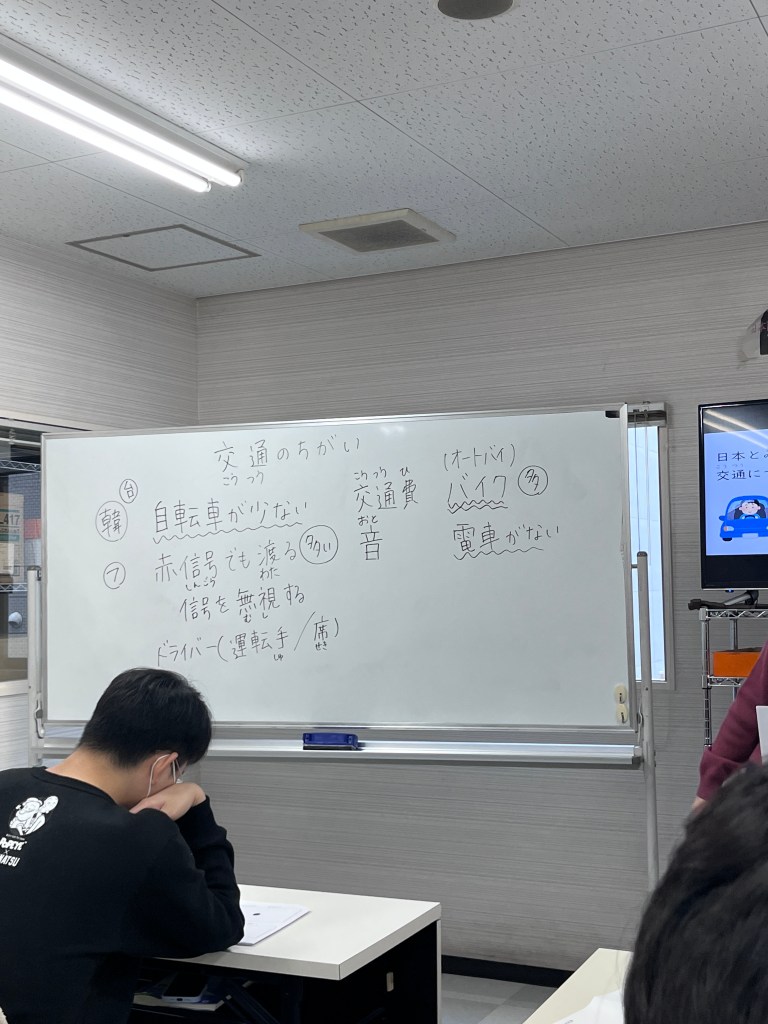 交通のちがい
こう つう
台
韓 自転車が少ない
フ 赤信号でも渡る 多い
しんごう わた
信号を無視する
む し
ドライバー(運転手/席)
しゅ せき
こう つう ひ
交通費
おと
音
(オートバイ)
バイク 多
電車がない
日本と
交通に
こう つう
417
POPEYE
×